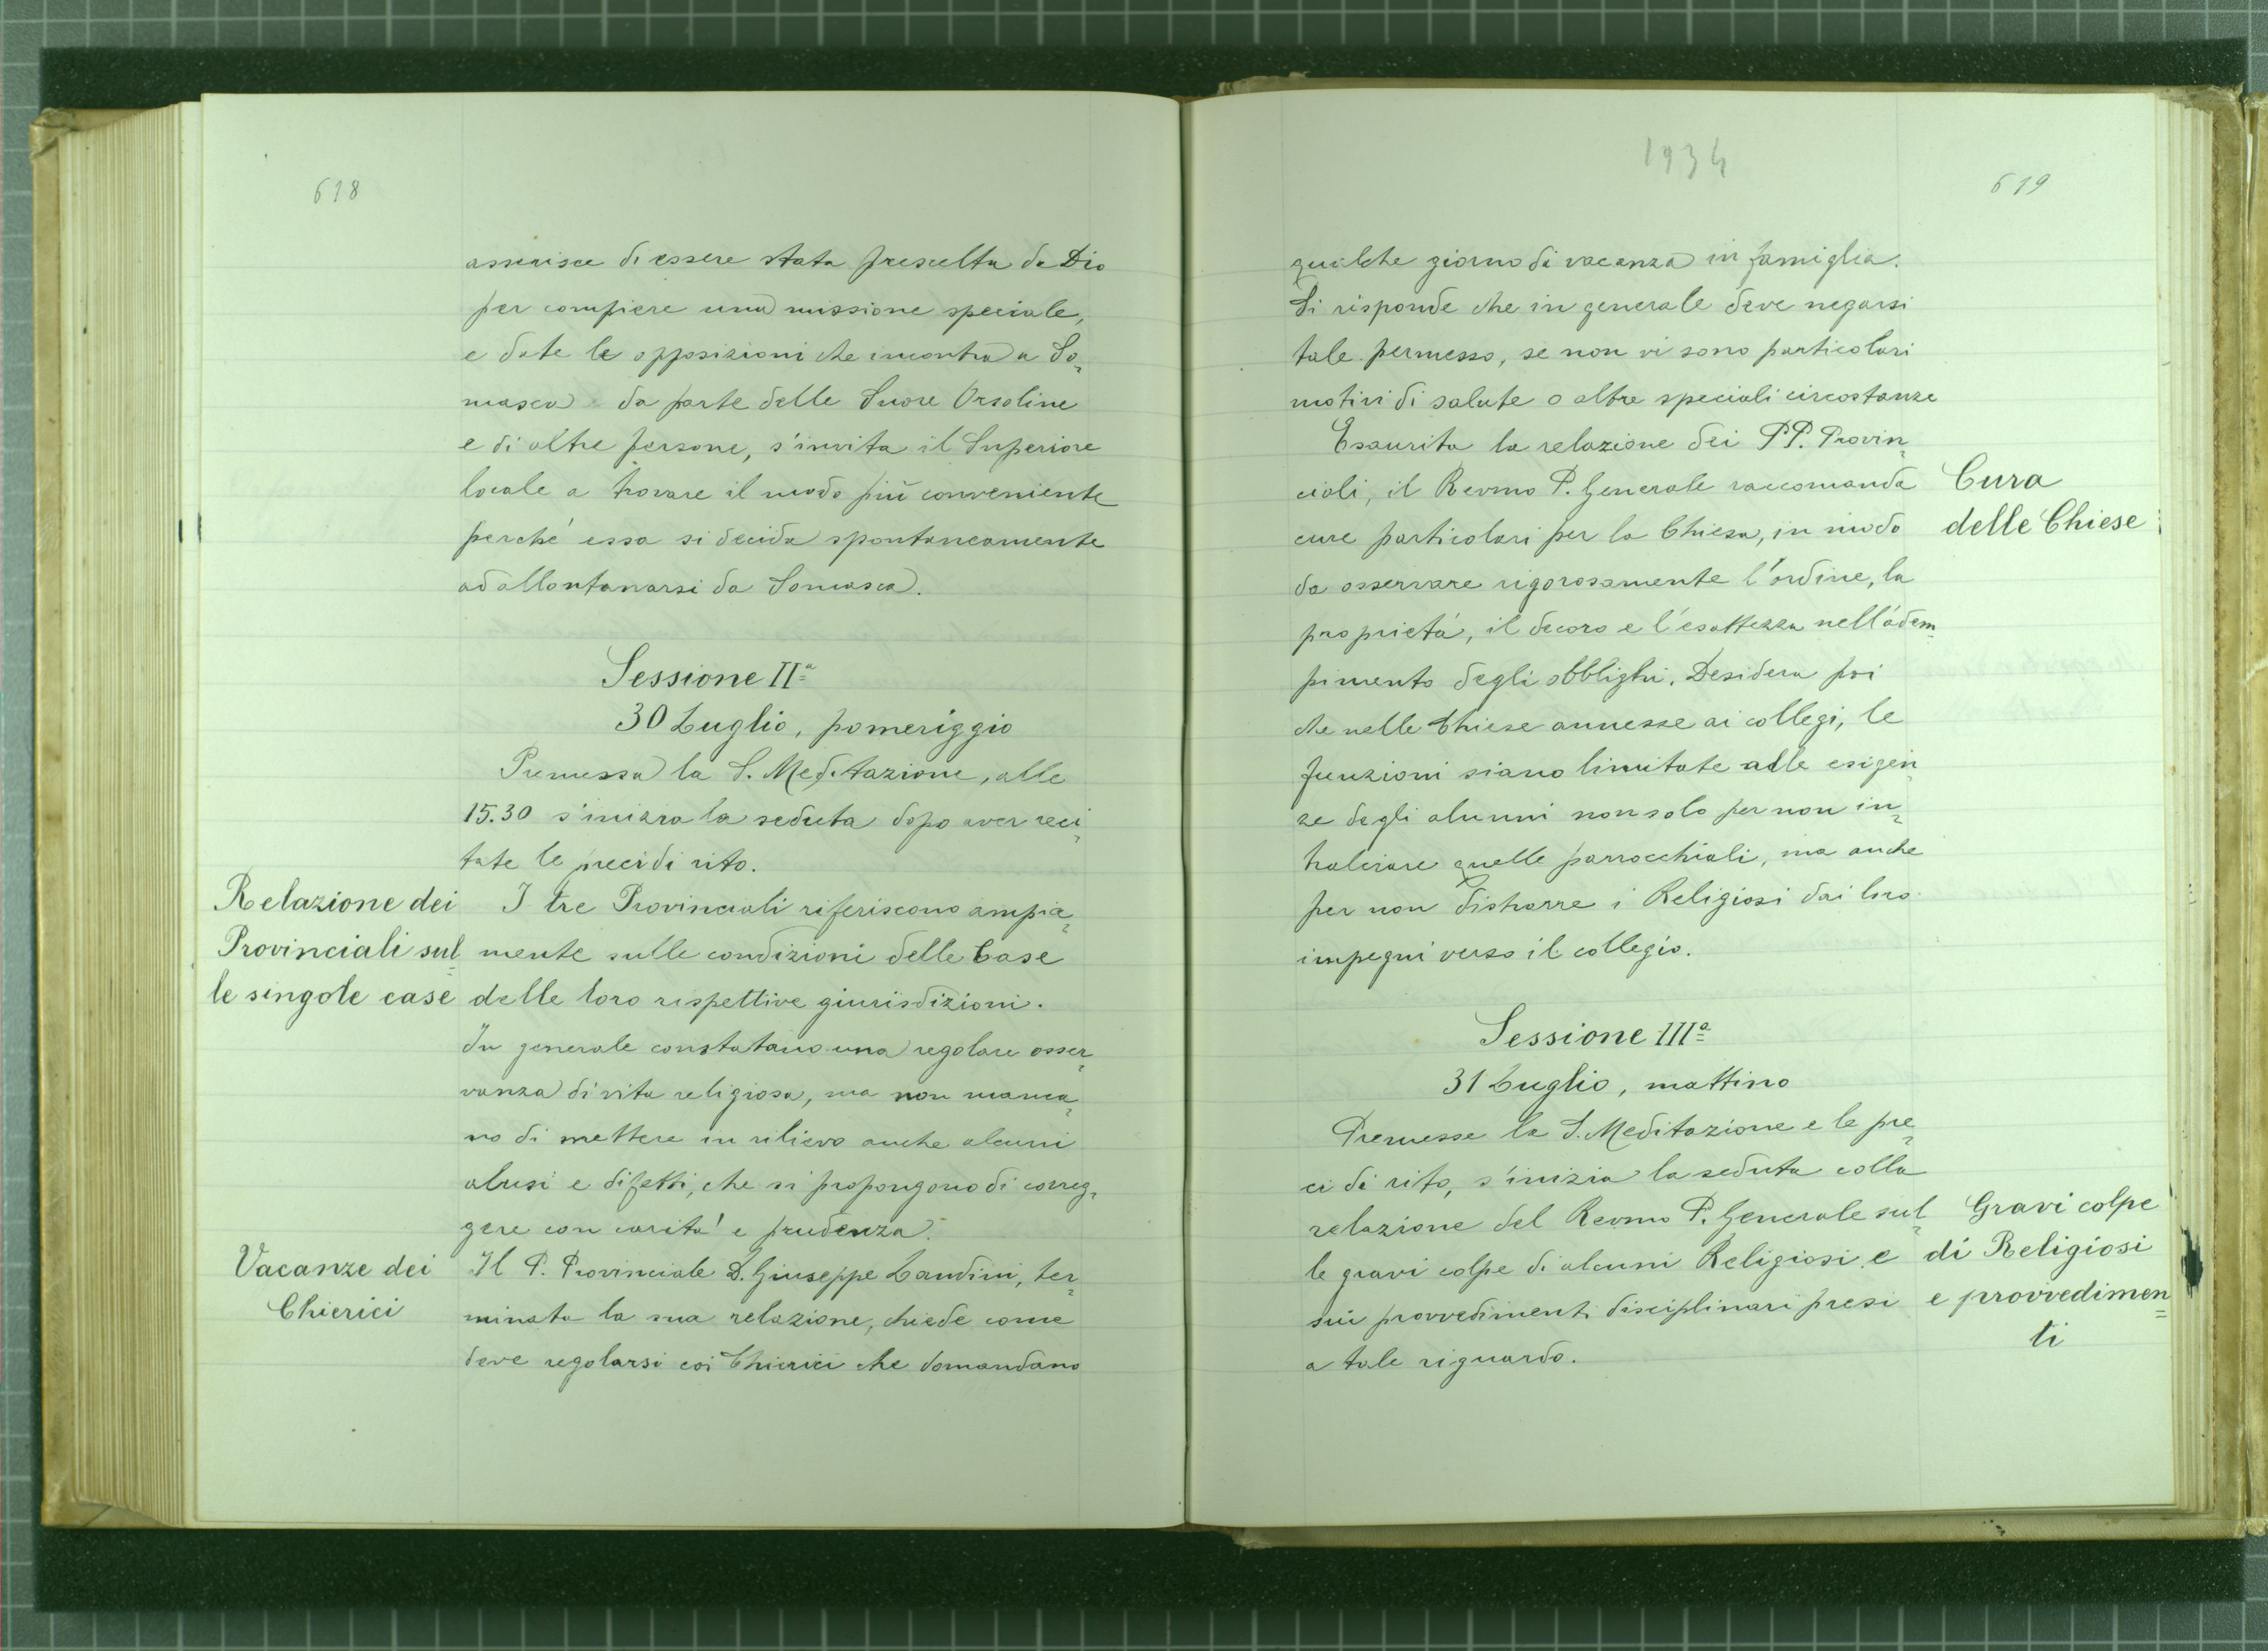 618
asserisce di essere stata prescelta da Dio
per compiere una missione speciale,
e date le opposizioni che incontra a So=
masca da parte delle Suore Orsoline
e di altre persone, s'invita il Superiore
locale a trovare il modo più conveniente
perché essa si decida spontaneamente
ad allontanarsi da Somasca.
Sessione IIª
30 Luglio, pomeriggio
Premessa la S. Meditazione, alle
15.30 s'inizia la seduta dopo aver reci=
tate le preci di rito.
Relazione dei
Provinciali sul=
le singole case
I tre Provinciali riferiscono ampia=
mente sulle condizioni delle Case
delle loro rispettive giurisdizioni.
In generale constatano una regolare osser=
vanza di vita religiosa, ma non manca=
no di mettere in rilievo anche alcuni
abusi e difetti, che si propongono di correg=
gere con carità e prudenza.
Vacanze dei
Chierici
Il P. Provinciale D. Giuseppe Landini, ter=
minata la sua relazione, chiede come
deve regolarsi coi Chierici che domandano
1934
619
qualche giorno di vacanza in famiglia.
Si risponde che in generale deve negarsi
tale permesso, se non vi sono particolari
motivi di salute o altre speciali circostanze
Esaurita la relazione dei PP. Provin=
ciali, il Revmo P. Generale raccomanda
cure particolari per la Chiesa, in modo
da osservare rigorosamente l'ordine, la
proprietà, il decoro e l'esattezza nell'adem=
pimento degli obblighi. Desidera poi
che nelle Chiese annesse ai collegi, le
funzioni siano limitate alle esigen=
ze degli alunni non solo per non in=
tralciare quelle parrocchiali, ma anche
per non distrarre i Religiosi dai loro
impegni verso il collegio.
Cura
delle Chiese
Sessione IIIª
31 Luglio, mattino
Premesse la S. Meditazione e le pre=
ci di rito, s'inizia la seduta colla
relazione del Revmo P. Generale sul=
le gravi colpe di alcuni Religiosi e
sui provvedimenti disciplinari presi
a tale riguardo.
Gravi colpe
di Religiosi
e provvedimen=
ti